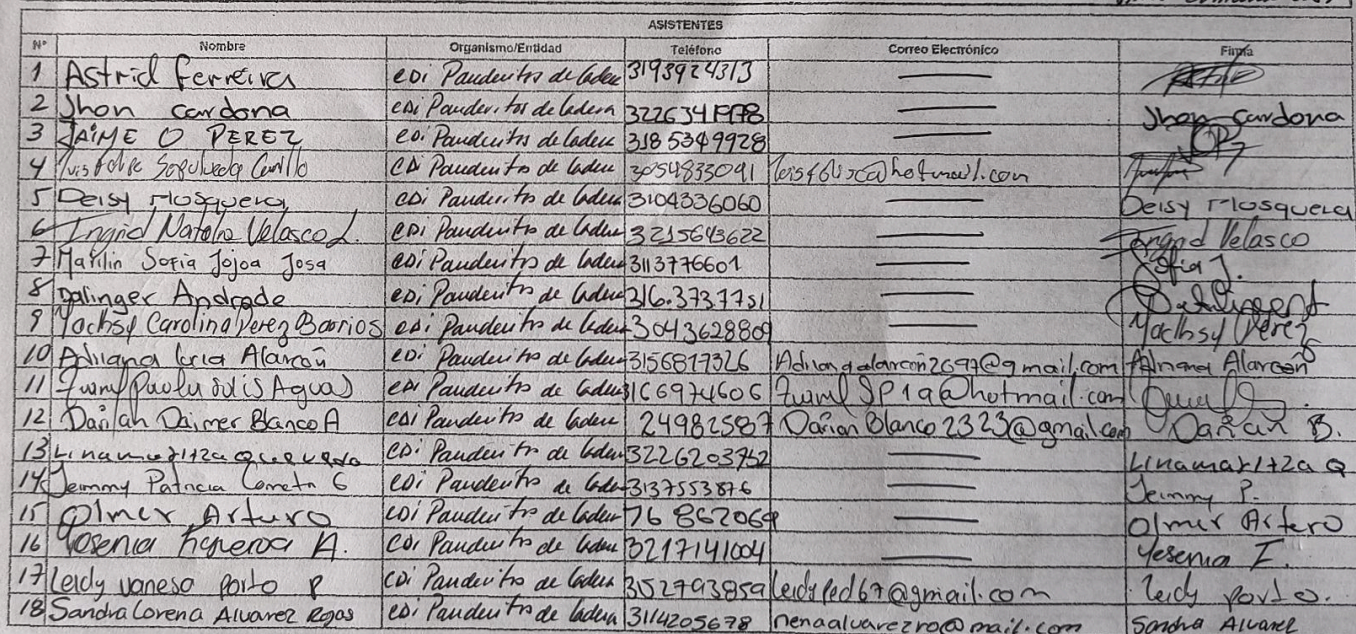 ASISTENTES
Nº Nombre Organismo/Entidad Teléfono Correo Electrónico Firma
1 Astrid Ferreira CDI Panderitos de ladera 3193924313
2 Jhon cardona CDI Panderitos de ladera Jhon cardona
3 JAIME O PEREZ CDI Panderitos de ladera 3185349928
4 CDI Panderitos de ladera 3054833091
5 Deisy Mosquera CDI Panderitos de ladera 3104336060 Deisy Mosquera
6 Ingrid Natalia Velasco L. CDI Panderitos de ladera 3215643622 Ingrid Velasco
7 Marilin Sofia Jojoa Josa CDI Panderitos de ladera 3113776601 Sofia J.
8 Dalinger Andrade CDI Panderitos de ladera 316.3737751
9 Yachsy Carolina Perez Barrios CDI Panderitos de ladera 3043628809 Yachsy Perez
10 Adriana Alarcón CDI Panderitos de ladera 3156817326 Adriana Alarcón
11 CDI Panderitos de ladera 3166974606
12 Daimer Blanco A CDI Panderitos de ladera 24982587 B.
13 Linamaritza CDI Panderitos de ladera 3226203752 Linamaritza Q
14 Jemmy Patricia CDI Panderitos de ladera 3137553876 Jemmy P.
15 Olmer Arturo CDI Panderitos de ladera Olmer Artero
16 Yesenia Figueroa A. CDI Panderitos de ladera 3217141004 Yesenia F.
17 Leidy vanesa porto P CDI Panderitos de ladera 3152793859 Leidy porto.
18 Sandra Lorena Alvarez Rojas CDI Panderitos de ladera 3114205678 nenaalvarezro@mail.com Sandra Alvarez